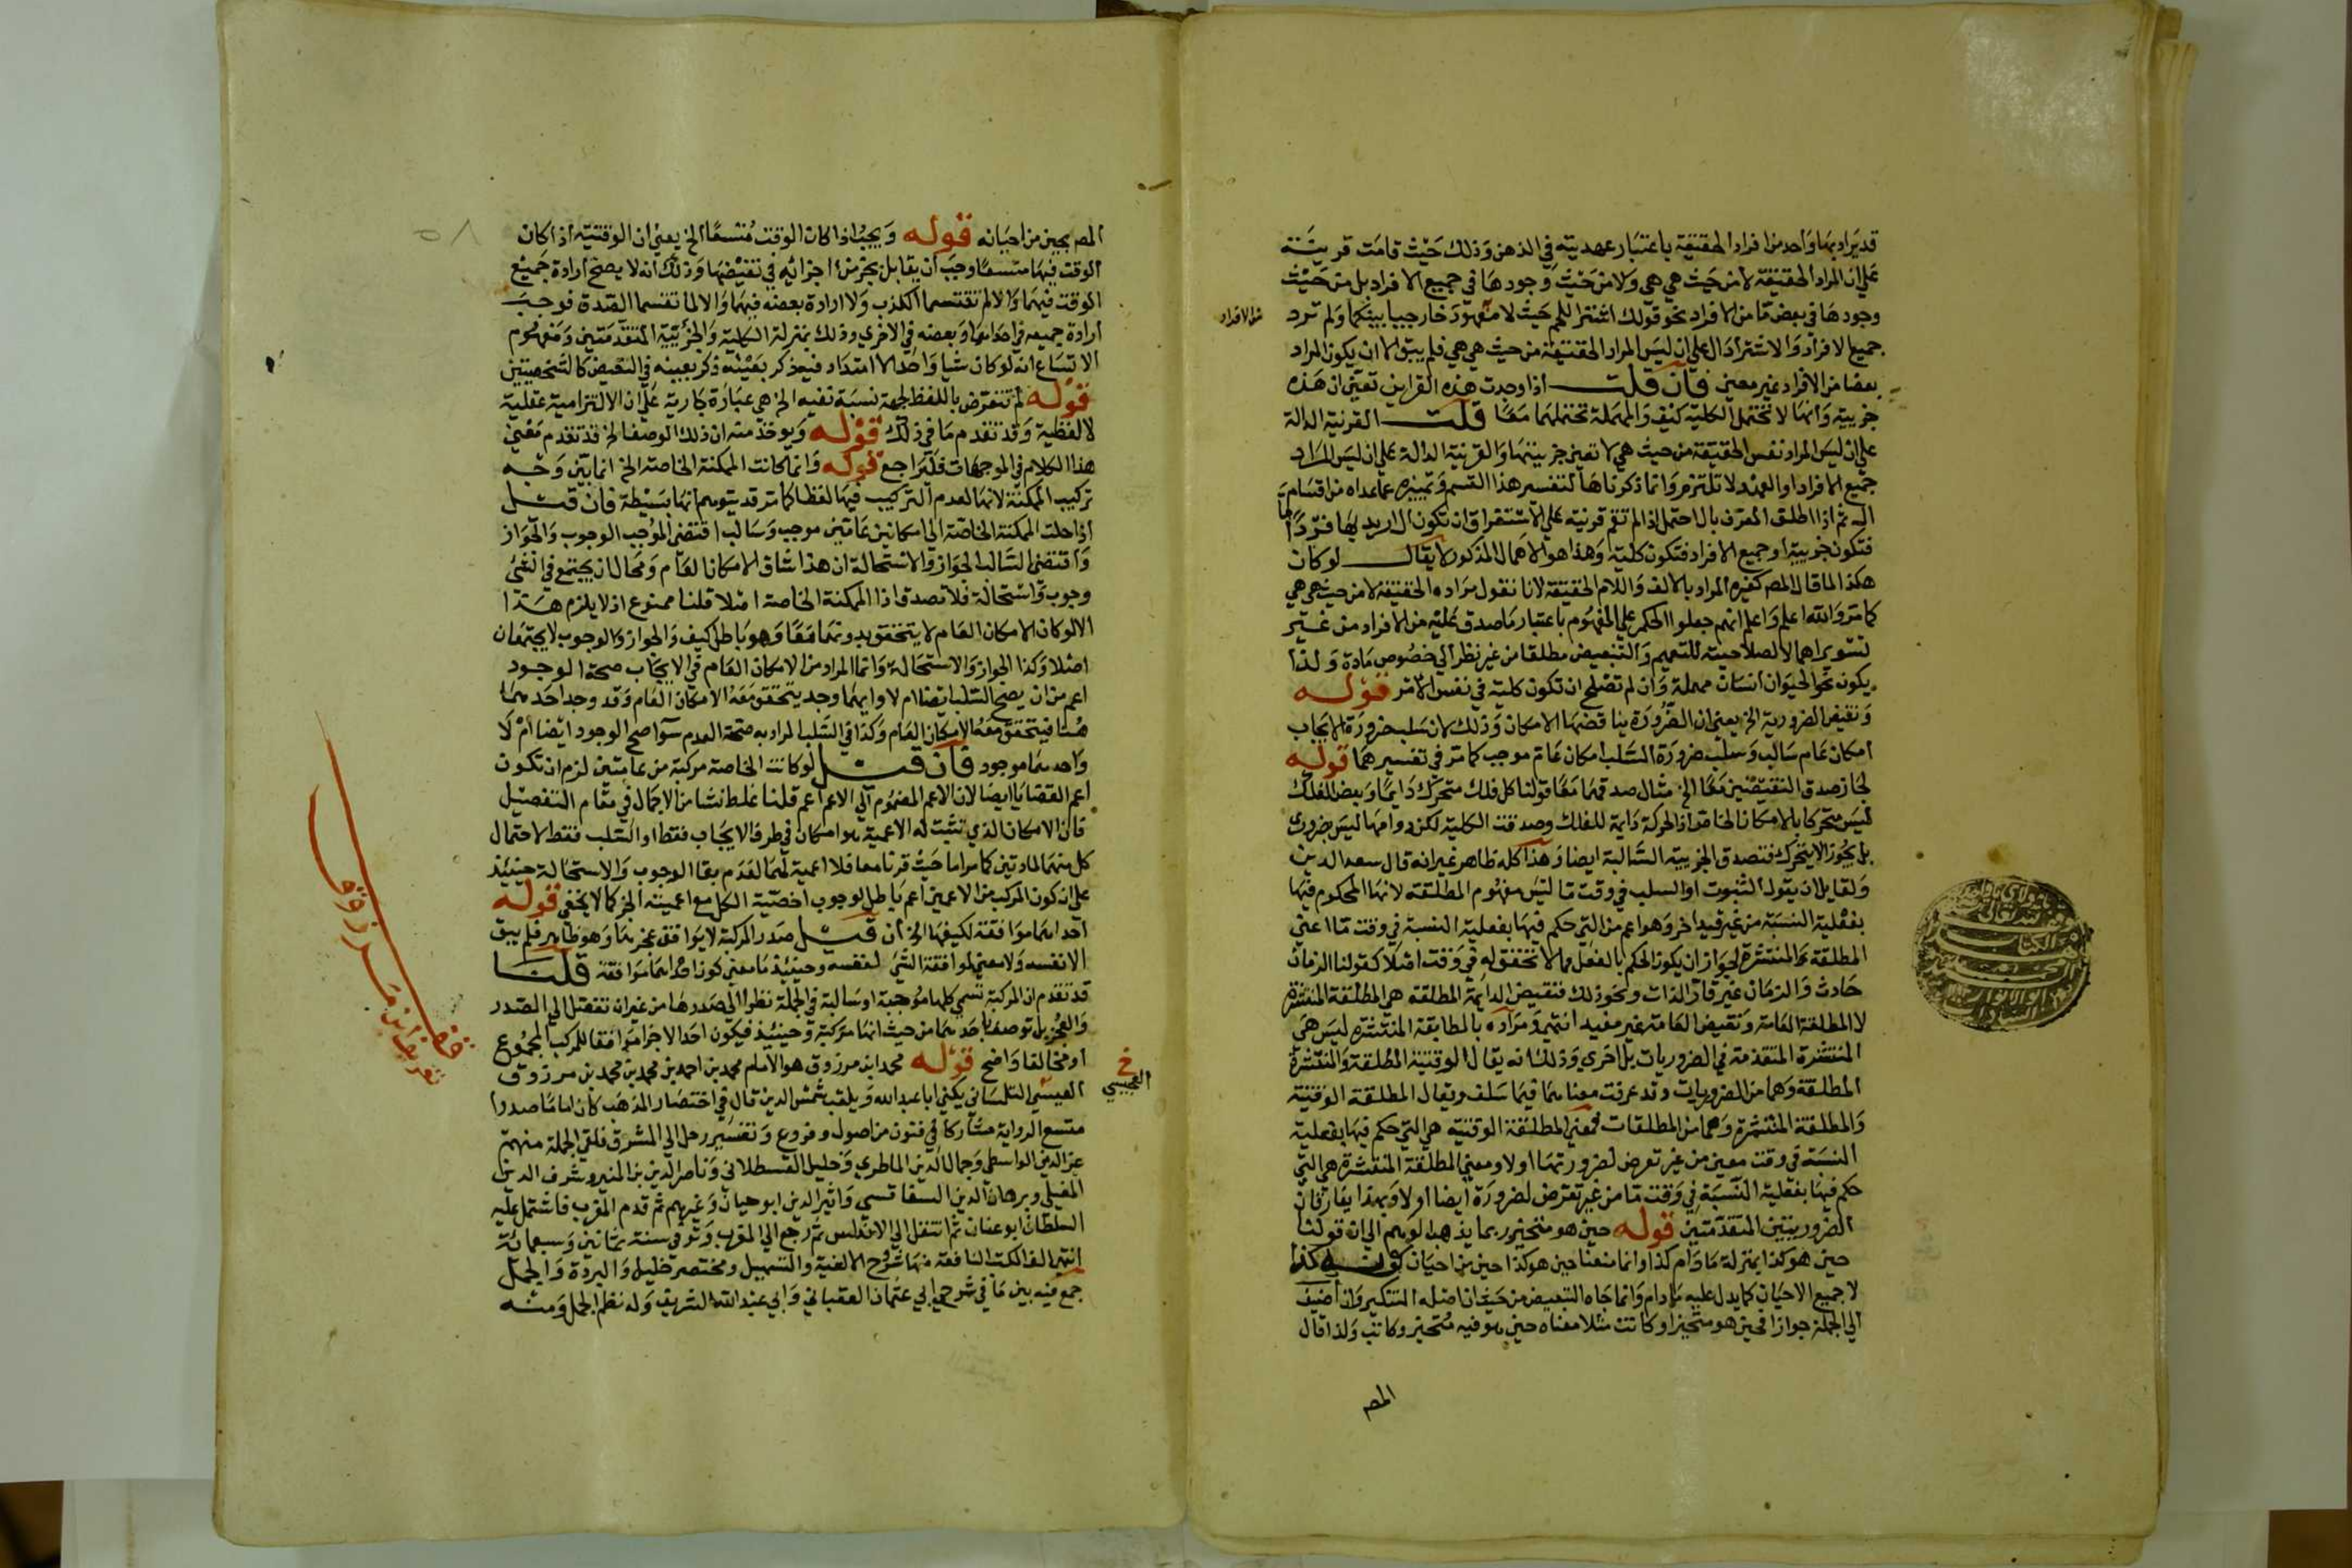 قد يراد بها واحد من افراد الحقيقة باعتبار عهديته في الذهن وذلك حيث قامت قرينة
على ان المراد الحقيقة لا من حيث هي هي ولا من حيث وجودها في جميع الافراد بل من حيث
وجودها في بعض ما من الافراد نحو قولك اشتر اللحم حيث لا معهود خارجيا بينكما ولم ترد
جميع الافراد والاشتراء دال على ان ليس المراد الحقيقة من حيث هي هي فلم يبق الا ان يكون المراد
بعضا من الافراد غير معين فان قلت اذا وجدت هذه القراين تعين ان هذه
جزيية وانها لا تحتمل الكلية كيف والمهملة تحتملهما معا قلت القرينة الدالة
على ان ليس المراد نفس الحقيقة من حيث هي لا تعين جزييتها والقرينة الدالة على ان ليس المراد
جميع الافراد او العهد لا تلتزم وانما ذكرناها لتفسير هذا القسم وتمييزه عما عداه من اقسام
ال ثم اذا اطلق المعرف بال احتمل اذا لم تقم قرينة على الاستغراق ان تكون ال اريد بها فردا
فتكون جزيية او جميع الافراد فتكون كلية وهذا هو الاهمال المذكور لا يقال لو كان
هكذا لما قال المصـ كغيره المراد بالالف واللام الحقيقة لانا نقول مراده الحقيقة لا من حيث هي هي
كما مر والله اعلم واعلم انهم جعلوا الحكم على المفهوم باعتبار ما صدق عليه من الافراد من غير
تسويرها لصلاحيته للتعميم والتبعيض مطلقا من غير نظر الى خصوص مادة ولذا
يكون نحو الحيوان انسان مهملة وان لم تصلح ان تكون كلية في نفس الامر قوله
ونقيض الضرورية الخ يعني ان الضرورة يناقضها الامكان وذلك لان سلب ضرورة الايجاب
امكان عام سالب وسلب ضرورة السلب امكان عام موجب كما مر في تفسيرهما قوله
لجاز صدق النقيضين معا الخ مثال صدقهما معا قولنا كل فلك متحرك دايما وبعض الفلك
ليس متحركا بالامكان الخاص اذ الحركة دايمة للفلك وصدقت الكلية لكن دوامها ليس ضروري
بل يجوز الا يتحرك فتصدق الجزيية السالبة ايضا وهذا كله ظاهر غير انه قال سعد الدين
ولقايل ان يقول الثبوت او السلب في وقت ما ليس مفهوم المطلقة لانها المحكوم فيها
بفعلية النسبة من غير قيد اخر وهو اعم من التي حكم فيها بفعلية النسبة في وقت ما اعني
المطلقة المنتشرة لجواز ان يكون الحكم بالفعل مما لا تحقق له في وقت اصلا كقولنا الزمان
حادث والزمان غير قار الذات ونحو ذلك فنقيض الدايمة المطلقة هي المطلقة المنتشرة
لا المطلقة العامة ونقيض العامة غير مفيد انتهى ومراده بالمطابقة المنتشرة ليس هي
المنتشرة المتقدمة في الضروريات بل اخرى وذلك انه يقال الوقتية المطلقة والمنتشرة
المطلقة وهما من الضروريات وقد عرفت معناهما فيما سلف ويقال المطلقة الوقتية
والمطلقة المنتشرة وهما من المطلقات فمعنى المطلقة الوقتية هي التي حكم فيها بفعلية
النسبة في وقت معين من غير تعرض لضرورتها اولا ومعنى المطلقة المنتشرة هي التي
حكم فيها بفعلية النسبة في وقت ما من غير تعرض لضرورة ايضا اولا وبهذا يفارقان
الضروريتين المتقدمتين قوله حين هو متحيز ربما يذهب الوهم الى ان قولنا
حين هو كذا بمنزلة ما دام كذا وانما معنا حين هو كذا احين من احيان كونه كذا
لا جميع الاحيان كما يدل عليه ما دام وانما جاه التبعيض من حيث ان اصله التنكير وان اضيف
الى الجملة جوازا فحين هو متحيز او كاتب مثلا معناه حين هو فيه متحيز وكاتب ولذا قال
المصـ
المصـ بحين من احيانه قوله ويجب اذا كان الوقت متسعا الخ يعني ان الوقتية اذا كان
الوقت فيها متسعا وجب ان يقابل بجزء من اجزائه في نقيضها وذلك انه لا يصح ارادة جميع
الوقت فيهما والا لم تقتسما الكذب ولا ارادة بعضه فيهما والا لما تقسما الصدق فوجب
ارادة جميعه في احداهما وبعضه في الاخرى وذلك بمنزلة الكلية والجزيية المتقدمتين ومفهوم
الاتساع انه لو كان شيا واحدا لا امتداد فيه ذكر بعينه ذكر بعينه في النقيض كالشخصيتين
قوله لم تتعرض باللفظ لجهة نسبة نفيه الخ هي عبارة جارية على ان الالتزامية عقلية
لا لفظية وقد تقدم ما في ذلك قوله ويوخذ منه ان ذلك الوصف الخ قد تقدم معنى
هذا الكلام في الموجهات فليراجع قوله وانما كانت الممكنة الخاصة الخ انما بين وجه
تركيب الممكنة لانها لعدم التركيب فيها لفظا كما مر قد يتوهم انها بسيطة فان قيل
اذا حلت الممكنة الخاصة الى امكانين عامتين موجب وسالب اقتضى الموجب الوجوب والجواز
واقتضى السالب الجواز والاستحالة ان هذا شان الامكان العام ومحال ان يجتمع في الشي
وجوب واستحالة فلا تصدق اذا الممكنة الخاصة اصلا قلنا ممنوع اذ لا يلزم هذا
الا لو كان الامكان العام لا يتحقق بدونهما معا وهو باطل كيف والجواز والوجوب لا يجتمعان
اصلا وكذا الجواز والاستحالة وانما المراد من الامكان العام في الايجاب صحة الوجود
اعم من ان يصح السلب ايضا ام لا وايهما وجد يتحقق معه الامكان العام وقد وجد احدهما
هنا فيتحقق معه الامكان العام وكذا في السلب المراد به صحة العدم سوا صح الوجود ايضا ام لا
واحدهما موجود فان قيل لو كانت الخاصة مركبة من عامتين لزم ان تكون
اعم القضايا ايضا لان الاعم المضموم الى الاعم اعم قلنا غلط نشا من الاجمال في مقام التفصيل
فان الامكان الذي تثبت له الاعمية هو امكان في طرف الايجاب فقط او السلب فقط لاحتمال
كل منهما لمادتين كما مر اما حيث قرنا معا فلا اعمية لهما لعدم بقا الوجوب والاستحالة حينئذ
على ان كون المركب من الاعمين اعم باطل لوجوب اخصية الكل مع اعمية الجز كما لا يخفى قوله
احداهما موافقة لكيفها الخ ان قيل صدر المركبة لا يوافق عجزها وهو ظاهر فلم يبق
الا نفسه ولا معنى لموافقة الشي لنفسه وحينئذ ما معنى كون احداهما موافقة قلنا
قد تقدم ان المركبة تسمى كلها موجبة او سالبة في الجملة نظرا الى صدرها من غير ان تفصل الى الصدر
والعجز بل توصف باحدهما من حيث انها مركبة وحينئذ فيكون احد الاجزا موافقا للمركب المجموع
او مخالفا واضح قوله محمد ابن مرزوق هو الامام محمد بن احمد بن محمد بن محمد بن مرزوق
العيسي التلمساني يكنى ابا عبد الله ويلقب بشمس الدين قال في اختصار المذهب كان اماما صدرا
متسع الرواية مشاركا في فنون من اصول وفروع وتفسير رحل الى المشرق فلقي الجملة منهم
عز الدين الواسطي وجمال الدين الماطري وخليل القسطلاني وناصر الدين بن المنير وشرف الدين
المغيلي وبرهان الدين السفاقسي واثير الدين ابو حيان وغيرهم ثم قدم المغرب فاشتمل عليه
السلطان ابو عنان ثم انتقل الى الاندلس ثم رجع الى المغرب وتوفي سنة ثمانين وسبعمائة
انتهى الف الكتب النافعة منها شرح الالفية والتسهيل ومختصر خليل والبردة والجمل
جمع فيه بين ما في شرحي ابي عثمان العقباني وابي عبد الله الشريف وله نظم الجمل ومنه
خ
العجيسي